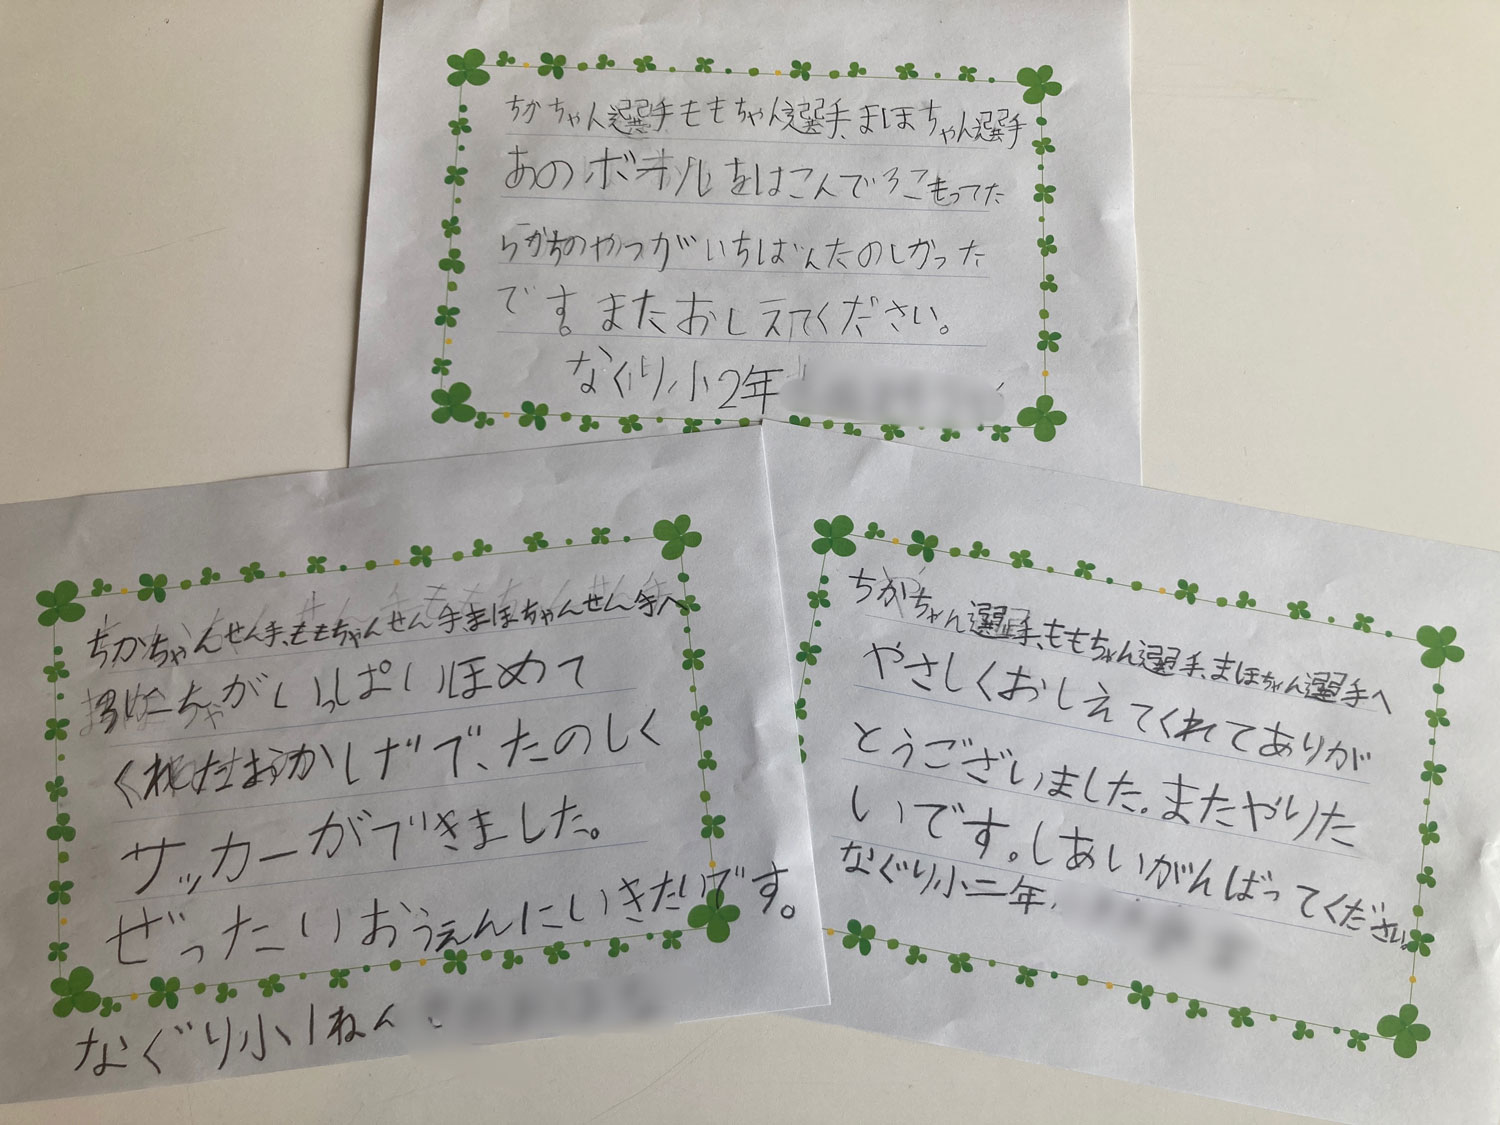 ちかちゃん選手ももちゃん選手、まほちゃん選手
あのボールをはこんでろこもってた
らかちのやつがいちばんたのしかった
です。またおしえてください。
なぐり小2年
ちかちゃんせん手、ももちゃんせん手まほちゃんせん手へ
ちゃがいっぱいほめて
くれたおかげで、たのしく
サッカーができました。
ぜったいおうえんにいきたいです。
なぐり小1ねん
ちかちゃん選手、ももちゃん選手、まほちゃん選手へ
やさしくおしえてくれてありが
とうございました。またやりた
いです。しあいがんばってください。
なぐり小二年